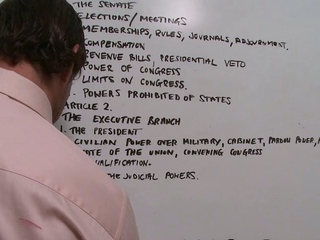 THE SENATE
ELECTIONS/MEETINGS
MEMBERSHIPS, RULES, JOURNALS, ADJOURNMENT.
COMPENSATION
REVENUE BILLS, PRESIDENTIAL VETO
POWER OF CONGRESS
LIMITS ON CONGRESS.
. POWERS PROHIBITED OF STATES
ARTICLE 2.
THE EXECUTIVE BRANCH
1. THE PRESIDENT
CIVILIAN POWER OVER MILITARY, CABINET, PARDON POWER,
STATE OF THE UNION, CONVENING CONGRESS
THE JUDICIAL POWERS.